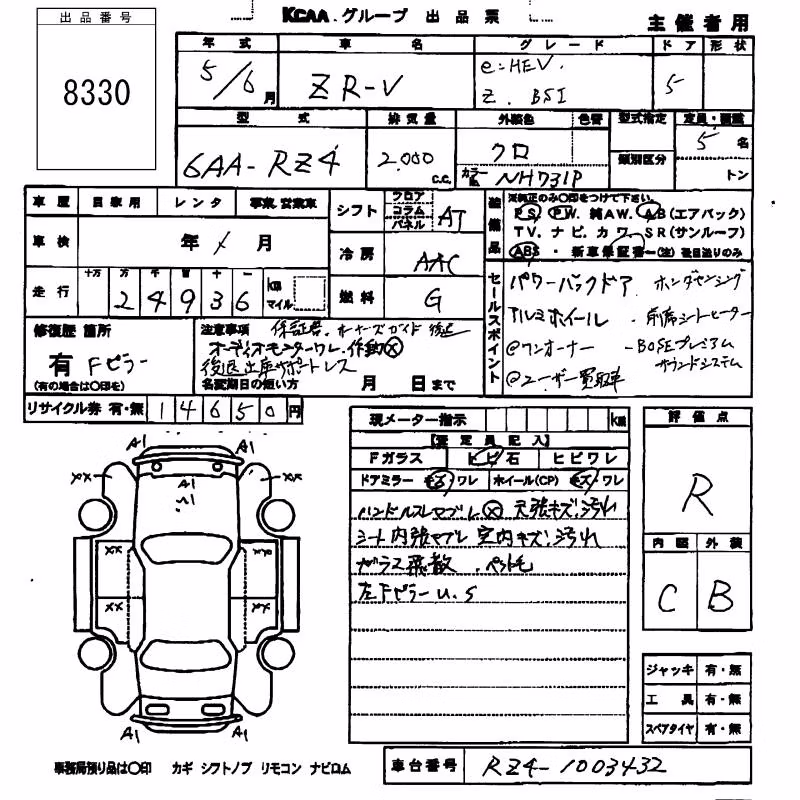 KCAA.グループ 出品票
主催者用
出品番号
8330
年式 車名 グレード ドア 形状
5/6月 ZR-V e:HEV. Z . BSI 5
型式 排気量 外装色 色替 型式指定 定員・積載
6AA-RZ4 2.000 c.c. クロ カラー NH731P 類別区分 5 名 トン
車歴 自家用 レンタ 事業、営業車
車検 年 月
走行 十万 万 千 百 十 一 km マイル
2 4 9 3 6
シフト フロア コラム パネル AT
冷房 AAC
燃料 G
装備品 ※純正のみ○印をつけて下さい。
PS. PW. 純AW. AB(エアバック)
TV. ナビ. カワ. SR(サンルーフ)
ABS ・ 新車保証書-(注) 後日送りのみ
セールスポイント
パワーバックドア ホンダセンシング
アルミホイール ・前席シートヒーター
@ワンオーナー ・BOSEプレミアム
サウンドシステム
@ユーザー買取車
修復歴 箇所
有 Fピラー
(有の場合は○印を)
注意事項 保証書、オーナーズガイド後送
オーディオモニターワレ、作動ⓧ
後退出庫サポートレス
名変期日の短い方 月 日まで
リサイクル券 有・無 14650円
現メーター指示 km
【査定員記入】
Fガラス ヒビ石 ヒビワレ
ドアミラー キズ ワレ ホイール(CP) キズ・ワレ
ハンドルスレマブレⓧ 天張キズ、汚れ
シート内張マブレ 室内キズ、汚れ
ガラス飛散 . ペット毛
左Fピラー U.S
評価点
R
内装 外装
C B
ジャッキ 有・無
工具 有・無
スペアタイヤ 有・無
A1 A1
XX A1 XX
XX XX
XX XX
A1 A1
事務局預り品は○印 カギ シフトノブ リモコン ナビロム
車台番号 RZ4-1003432